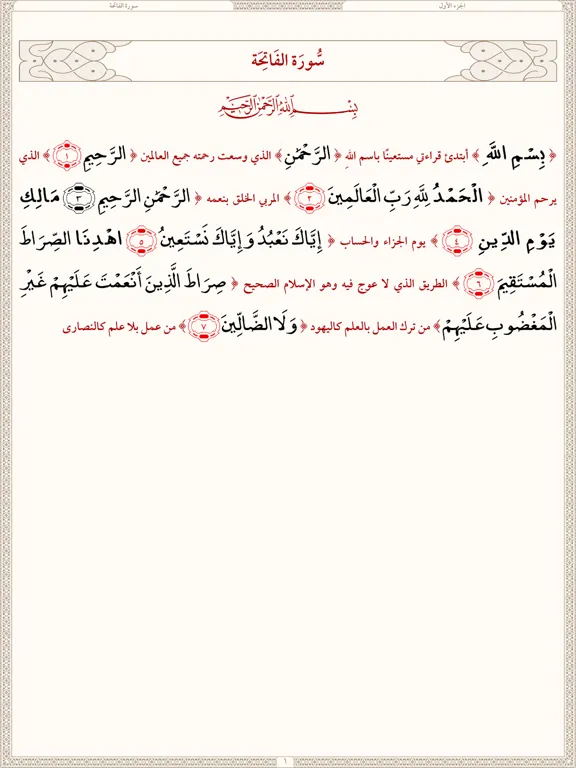 الجزء الأول
سورة الفاتحة
سُّورَة الفَاتِحَة
بِسْمِ اللَّهِ الرَّحْمَٰنِ الرَّحِيمِ
﴿ بِسْمِ اللَّهِ ﴾ أبتدئ قراءتي مستعينًا باسم اللهِ ﴿ الرَّحْمَٰنِ ﴾ الذي وسعت رحمته جميع العالمين ﴿ الرَّحِيمِ ١ ﴾ الذي
يرحم المؤمنين ﴿ الْحَمْدُ لِلَّهِ رَبِّ الْعَالَمِينَ ٢ ﴾ المربي الخلق بنعمه ﴿ الرَّحْمَٰنِ الرَّحِيمِ ٣ مَالِكِ
يَوْمِ الدِّينِ ٤ ﴾ يوم الجزاء والحساب ﴿ إِيَّاكَ نَعْبُدُ وَإِيَّاكَ نَسْتَعِينُ ٥ اهْدِنَا الصِّرَاطَ
الْمُسْتَقِيمَ ٦ ﴾ الطريق الذي لا عوج فيه وهو الإسلام الصحيح ﴿ صِرَاطَ الَّذِينَ أَنْعَمْتَ عَلَيْهِمْ غَيْرِ
الْمَغْضُوبِ عَلَيْهِمْ ﴾ من ترك العمل بالعلم كاليهود ﴿ وَلَا الضَّالِّينَ ٧ ﴾ من عمل بلا علم كالنصارى
١